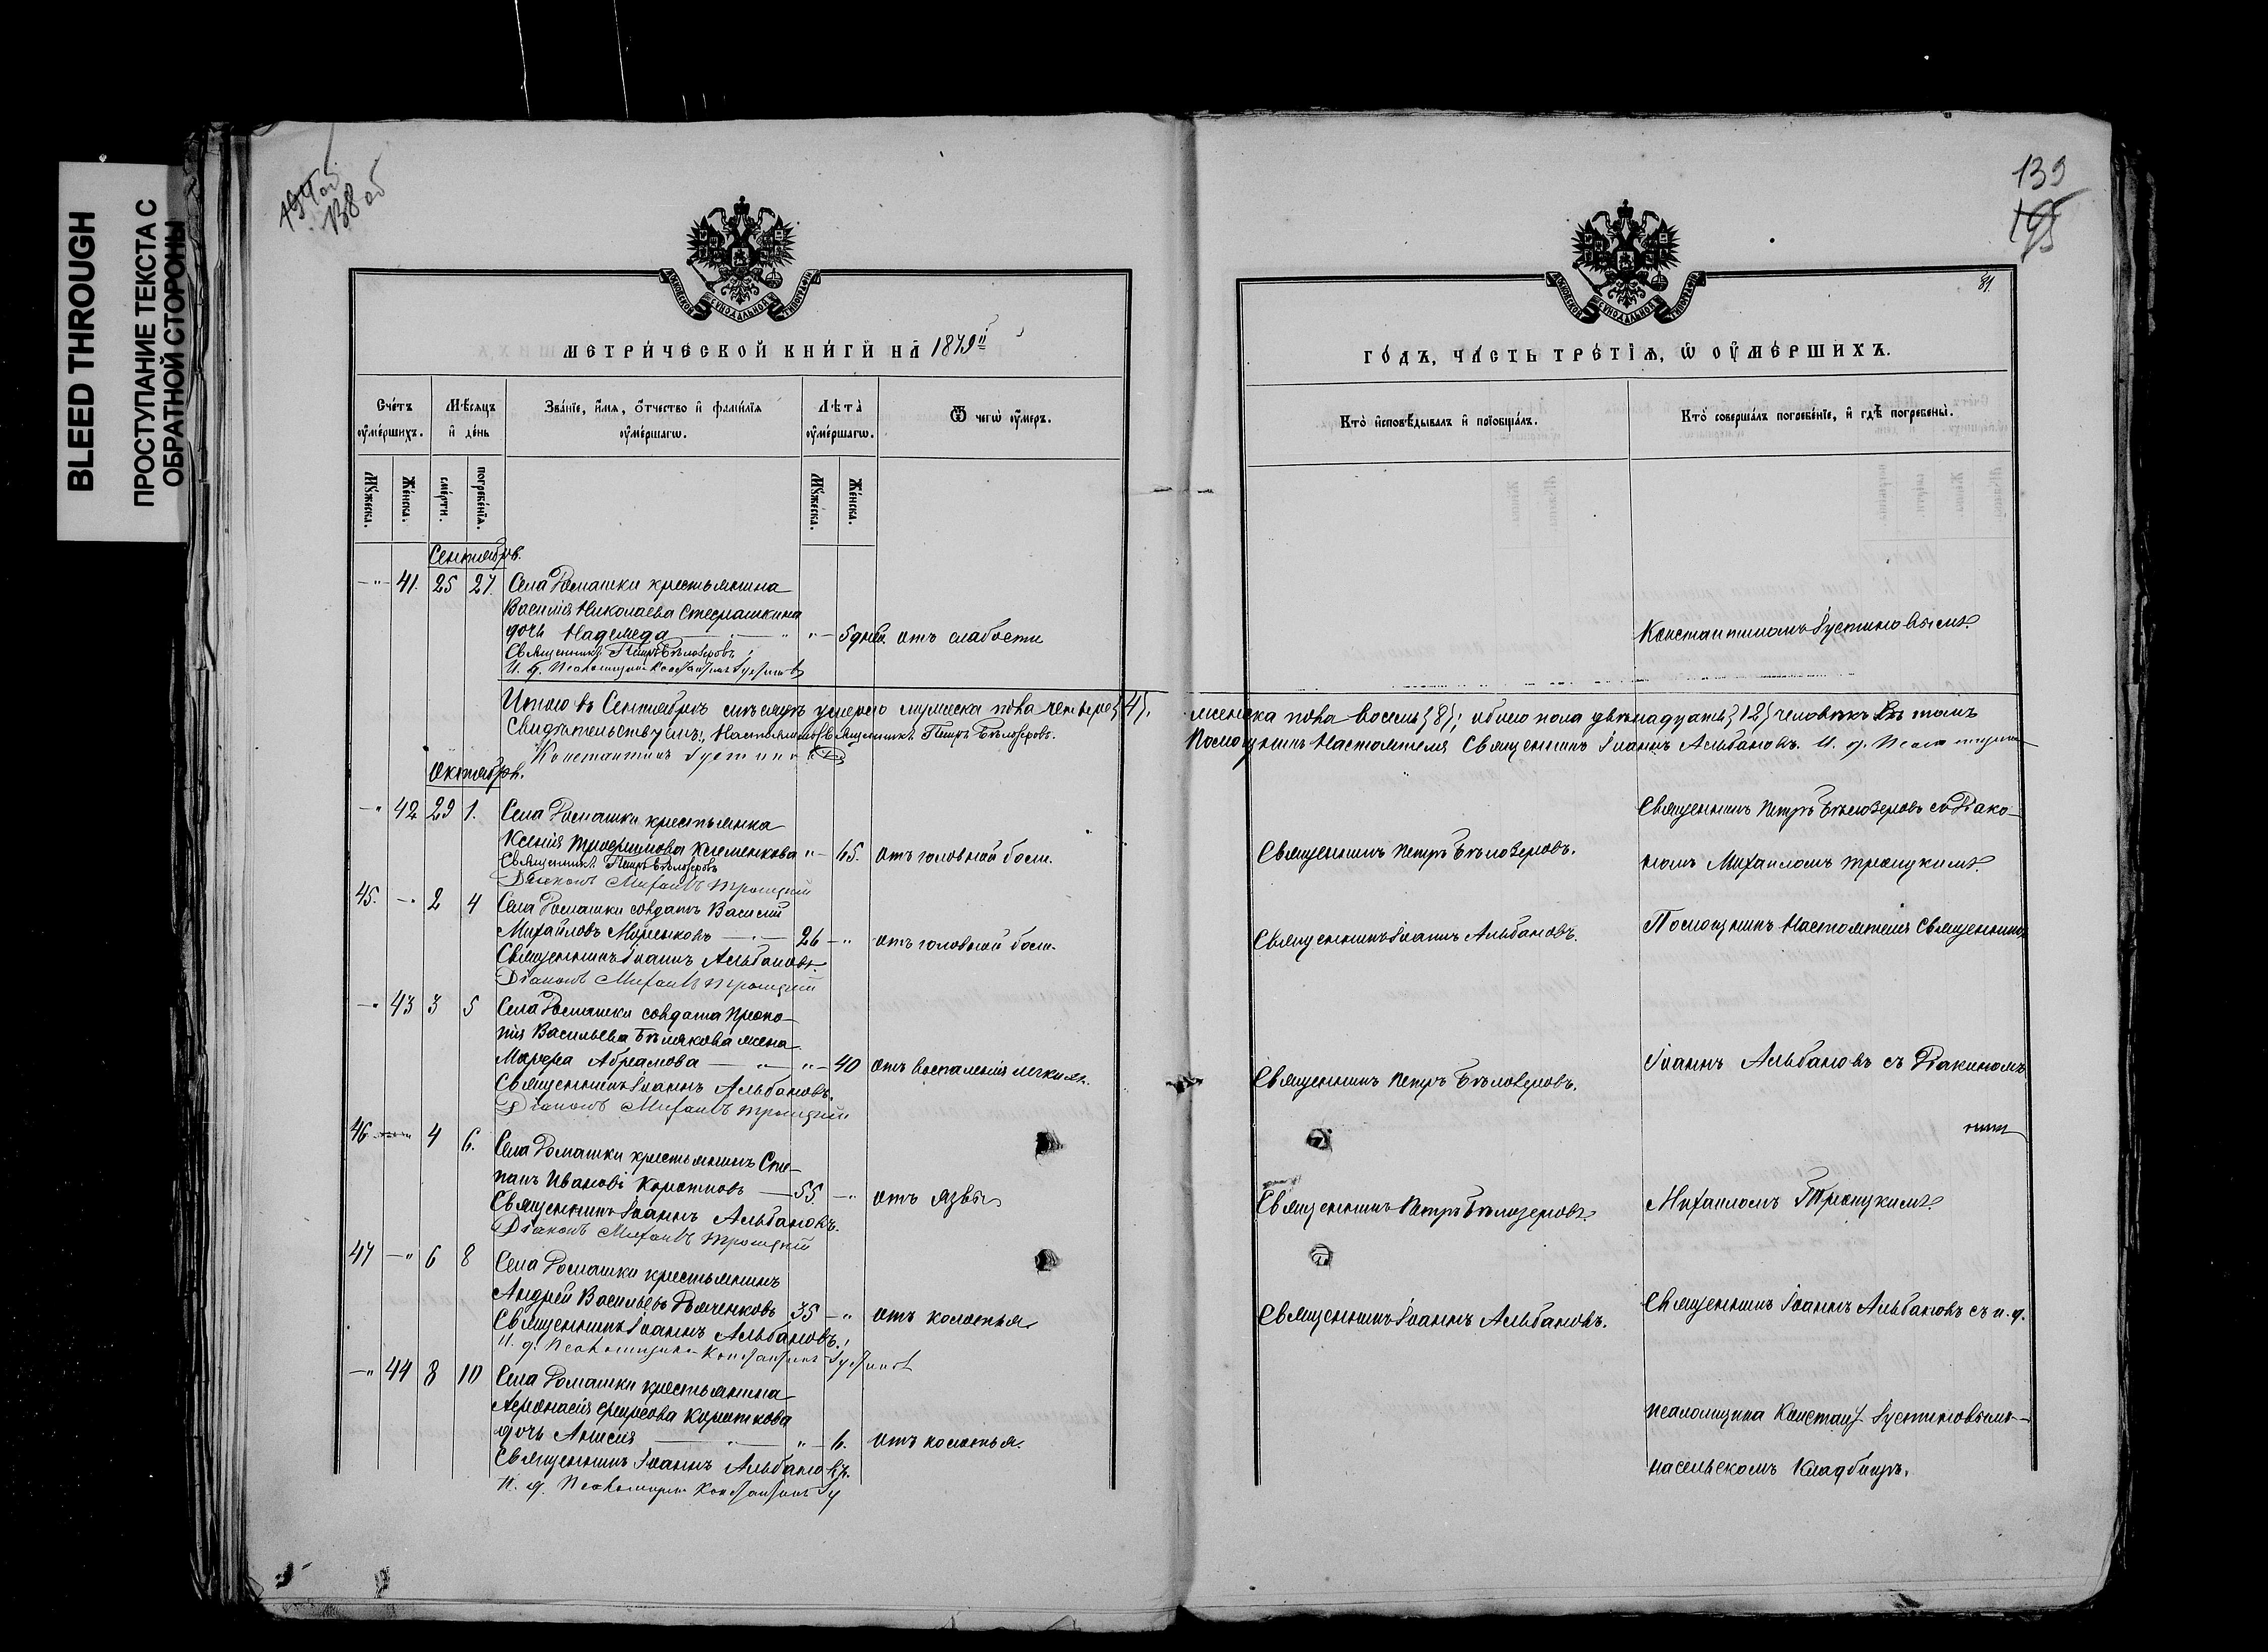 BLEED THROUGH
ПРОСТУПАНИЕ ТЕКСТА С
ОБРАТНОЙ СТОРОНЫ
138 об
МЕТРИЧЕСКОЙ КНИГИ НА 1879й
Счетъ умершихъ.
Мѣсяцъ и день
Званіе, имя, отчество и фамилія умершагѡ.
Лѣта умершагѡ.
Ѿ чегѡ умеръ.
Мꙋжеска.
Женска.
смерти.
погребенія.
Мꙋжеска.
Женска.
Сентябрь.
-"- 41. 25 27. Села Ромашки крестьянина
Василія Николаева
дочь Надежда "- 5 дней. отъ слабости
Священникъ Петръ Бѣлозеровъ
И. д. Псаломщика Константинъ
Итого въ Сентябрѣ мѣсяцѣ умерло мужеска пола четверо {4},
Свидѣтельствуемъ: Настоятель Священникъ Петръ Бѣлозеровъ.
Константинъ
Октябрь.
-" 42 29 1. Села Ромашки крестьянка
Ксенія Трофимова Клеменкова "- 65. отъ головной боли.
Священникъ Петръ Бѣлозеровъ
Діаконъ Михаилъ Троицкій
45. -" 2 4 Села Ромашки солдатъ Василій
Михайловъ 26 -" отъ головной боли.
Священникъ Іоаннъ Альбановъ.
Діаконъ Михаилъ Троицкій
-" 43 3 5 Села Ромашки солдата Проко-
пія Васильева Бѣлякова жена
Марфа Абрамова "- 40 отъ воспаленія легкихъ.
Священникъ Іоаннъ Альбановъ.
Діаконъ Михаилъ Троицкій
46 4 6. Села Ромашки крестьянинъ Сте-
панъ Ивановъ Коротковъ 55 -" отъ язвы
Священникъ Іоаннъ Альбановъ.
Діаконъ Михаилъ Троицкій
47 -" 6 8 Села Ромашки крестьянинъ
Андрей Васильевъ Дьяченковъ 35 -" отъ колотья
Священникъ Іоаннъ Альбановъ.
И. д. Псаломщика Константинъ
-" 44 8 10 Села Ромашки крестьянина
Афонасія Короткова
дочь Анисія "- 6. отъ колотья.
Священникъ Іоаннъ Альбановъ.
И. д. Псаломщика Константинъ
139
195
81.
ГОДЪ, ЧАСТЬ ТРЕТІѦ, Ѡ ОУМЕРШИХЪ.
Кто исповѣдывалъ и пріобщалъ.
Кто совершалъ погребеніе, и гдѣ погребены.
Константиномъ
женска пола восемь {8}; обоего пола двѣнадцать {12} человѣкъ. Въ томъ
Помощникъ Настоятеля Священникъ Іоаннъ Альбановъ. И. д. Псаломщика
Священникъ Петръ Бѣлозеровъ съ Діако-
Священникъ Петръ Бѣлозеровъ.
номъ Михаиломъ Троицкимъ.
Священникъ Іоаннъ Альбановъ.
Помощникъ Настоятеля Священникъ
Священникъ Петръ Бѣлозеровъ.
Іоаннъ Альбановъ съ Діакономъ
Священникъ Петръ Бѣлозеровъ.
Михаиломъ Троицкимъ.
Священникъ Іоаннъ Альбановъ.
Священникъ Іоаннъ Альбановъ съ и. д.
псаломщика
насельскомъ кладбищѣ.